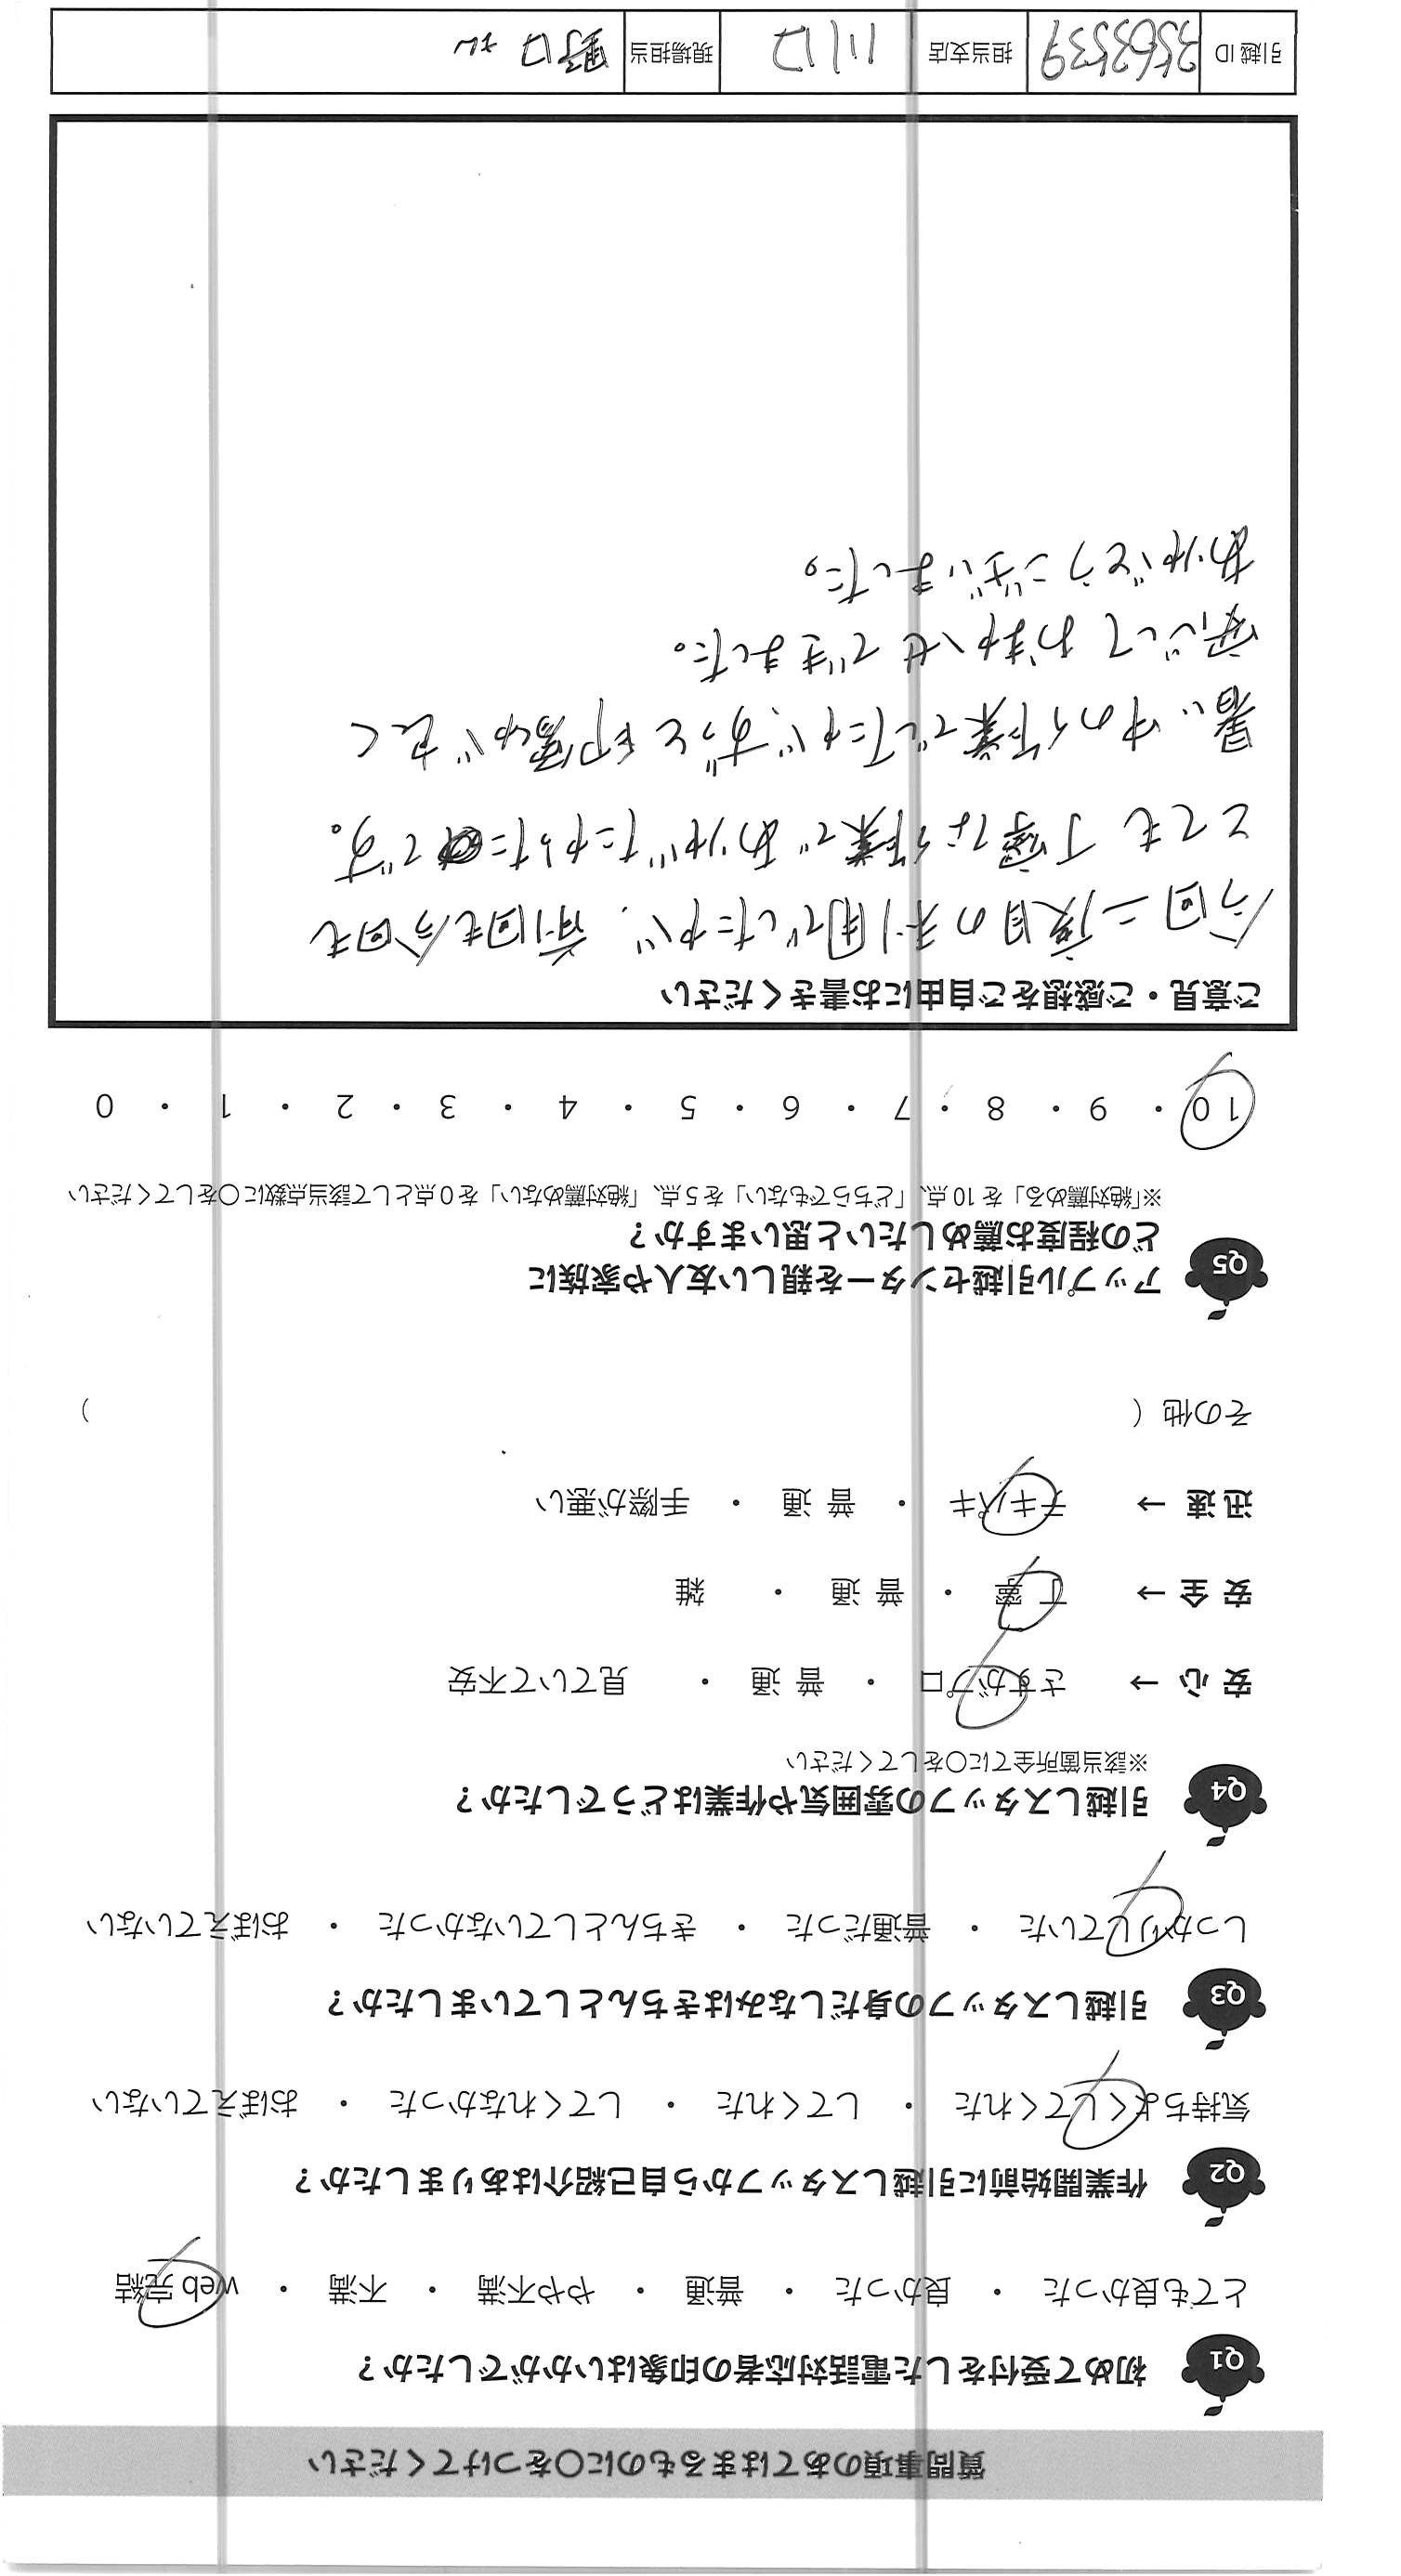 質問事項のあてはまるものに○をつけてください
Q1 初めて受付をした電話対応者の印象はいかがでしたか？
とても良かった ・ 良かった ・ 普通 ・ やや不満 ・ 不満 ・ web 完結
Q2 作業開始前に引越しスタッフから自己紹介はありましたか？
気持ちよくしてくれた ・ してくれた ・ してくれなかった ・ おぼえていない
Q3 引越しスタッフの身だしなみはきちんとしていましたか？
しっかりしていた ・ 普通だった ・ きちんとしていなかった ・ おぼえていない
Q4 引越しスタッフの雰囲気や作業はどうでしたか？
※該当箇所全てに○をしてください
安心 → さすがプロ ・ 普通 ・ 見ていて不安
安全 → 丁寧 ・ 普通 ・ 雑
迅速 → テキパキ ・ 普通 ・ 手際が悪い
その他（ ）
Q5 アップル引越センターを親しい友人や家族に
どの程度お薦めしたいと思いますか？
※「絶対薦める」を 10 点、「どちらでもない」を 5 点、「絶対薦めない」を 0 点として該当点数に○をしてください
10 ・ 9 ・ 8 ・ 7 ・ 6 ・ 5 ・ 4 ・ 3 ・ 2 ・ 1 ・ 0
ご意見・ご感想をご自由にお書きください
今回二度目の利用でしたが、前回も今回も
とても丁寧な作業でありがたかったです。
暑い中の作業でしたが、ずっと印象が良く
安心しておまかせできました。
ありがとうございました。
引越 ID 35635539 担当支店 川口 現場担当 野口